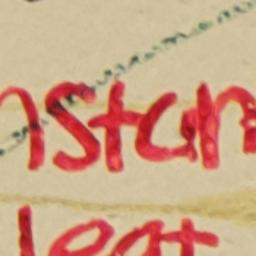 nstan
leat